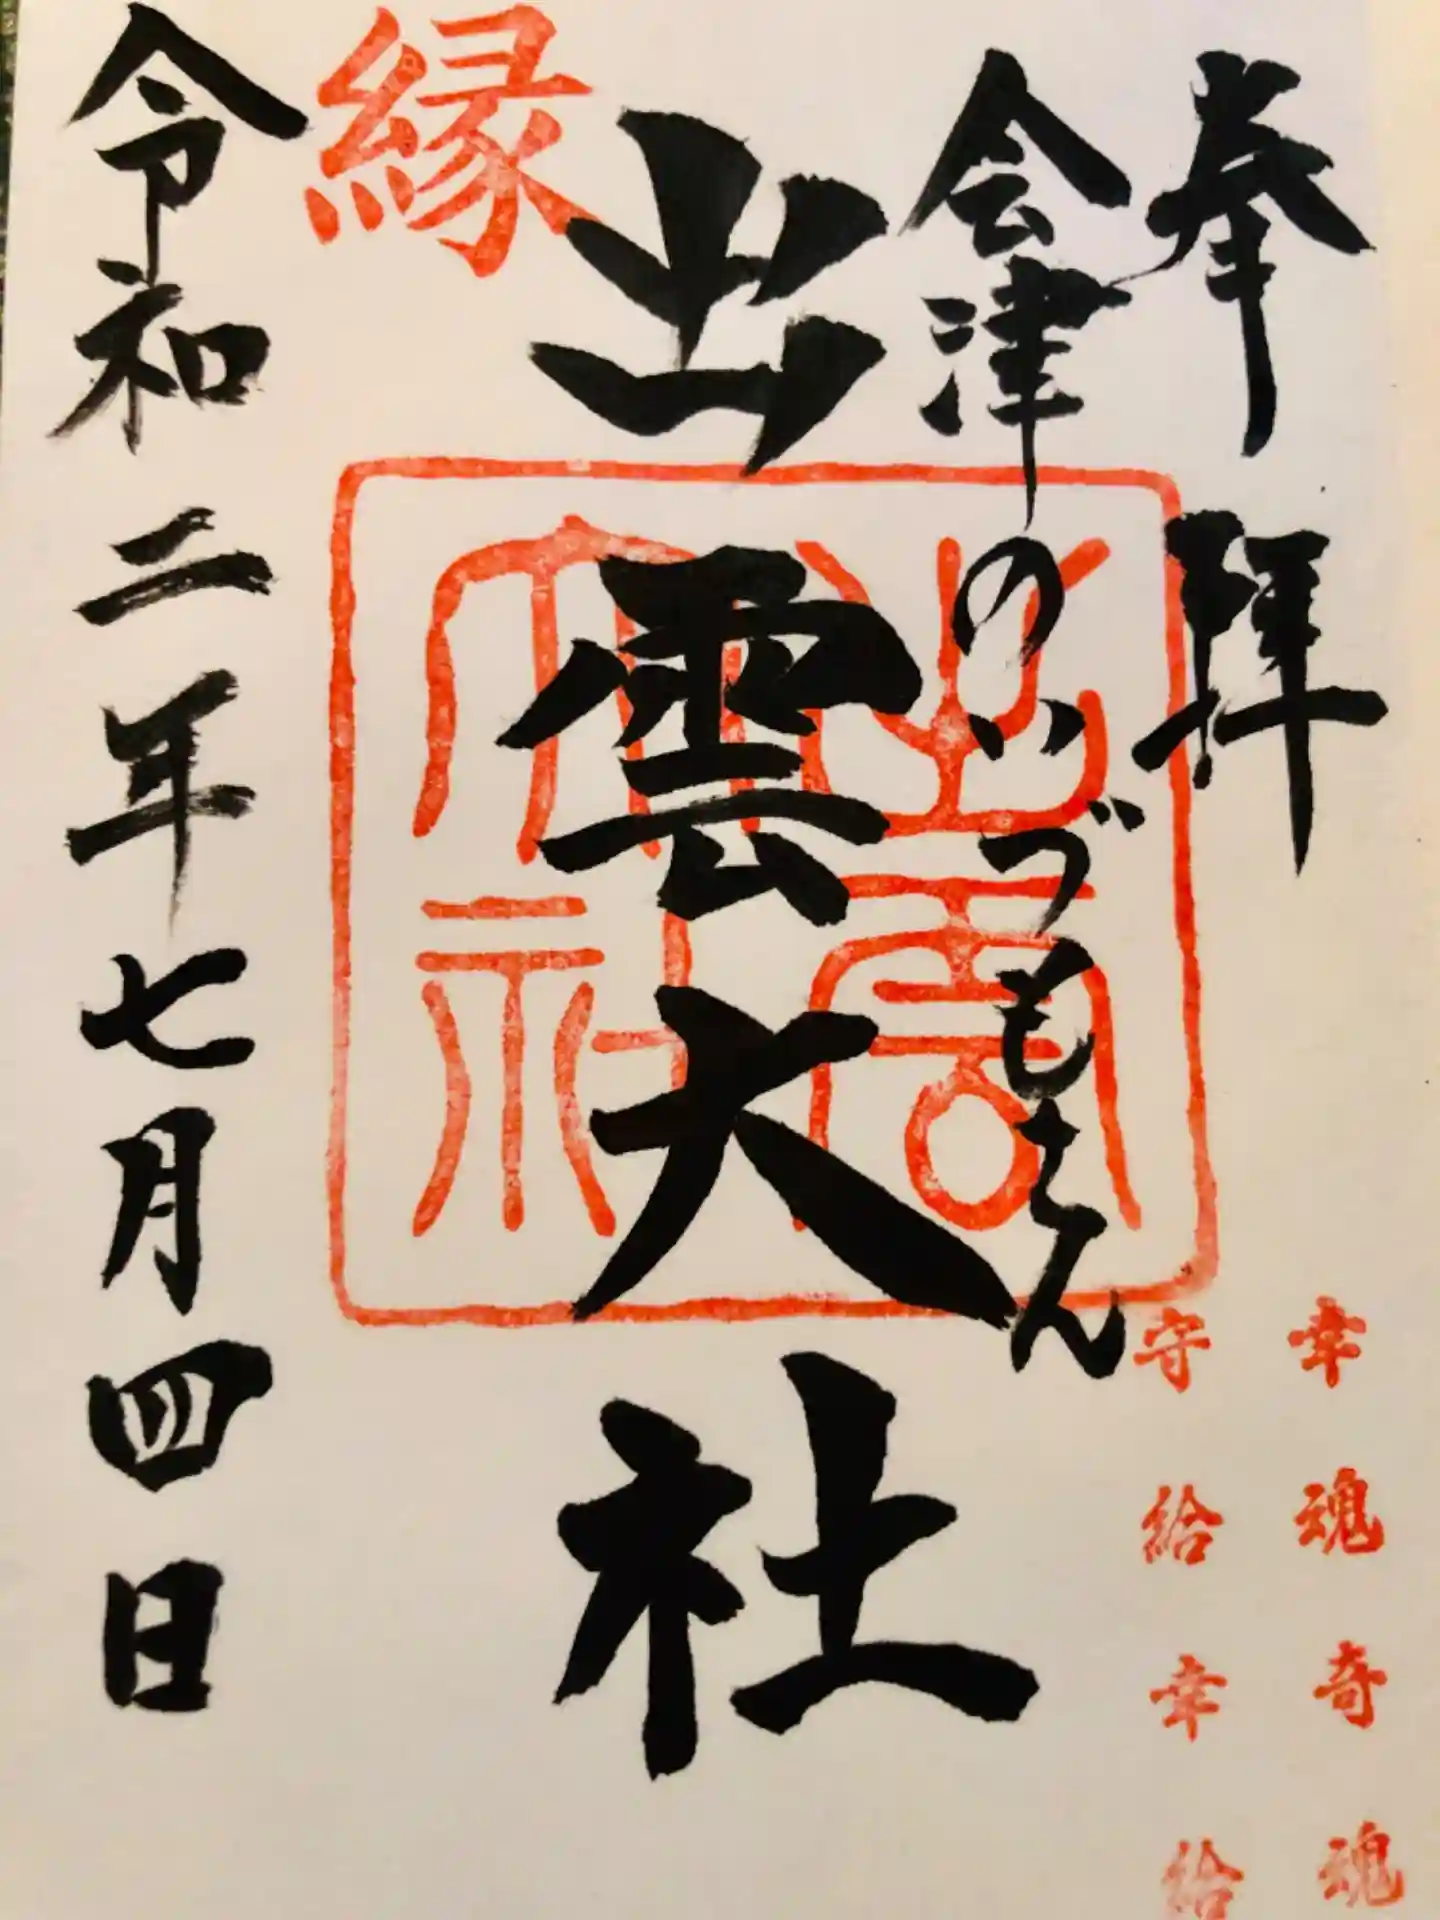 奉拝
会津のいづもさん
出雲大社
縁
令和二年七月四日
出雲
大社
幸魂奇魂
守給幸給